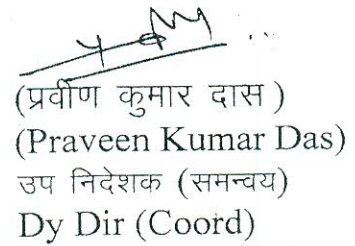 (प्रवीण कुमार दास)
(Praveen Kumar Das)
उप निदेशक (समन्वय)
Dy Dir (Coord)